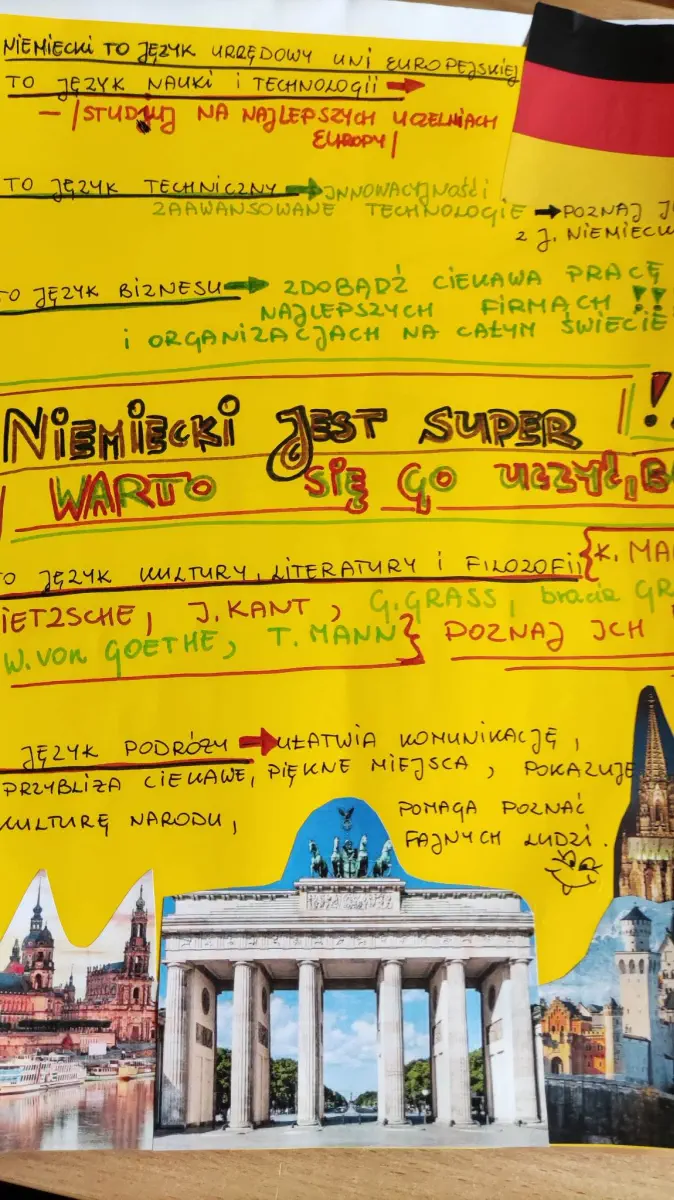 NIEMIECKI TO JĘZYK URZĘDOWY UNI EUROPEJSKIEJ
TO JĘZYK NAUKI i TECHNOLOGII →
- /STUDIUJ NA NAJLEPSZYCH UCZELNIACH
EUROPY/
TO JĘZYK TECHNICZNY → INNOWACYJNOŚCI
ZAAWANSOWANE TECHNOLOGIE → POZNAJ JE
Z J. NIEMIECK
TO JĘZYK BIZNESU → ZDOBĄDŹ CIEKAWA PRACĘ
NAJLEPSZYCH FIRMACH !!
i ORGANIZACJACH NA CAŁYM ŚWIECIE
NIEMIECKI JEST SUPER !!
WARTO SIĘ GO UCZYĆ, B
TO JĘZYK KULTURY, LITERATURY i FILOZOFII {K. MA
IETZSCHE, J. KANT, G. GRASS, bracia GR
W. von GOETHE, T. MANN} POZNAJ ICH
JĘZYK PODRÓŻY → UŁATWIA KOMUNIKACJĘ,
PRZYBLIŻA CIEKAWE, PIĘKNE MIEJSCA, POKAZUJE
KULTURĘ NARODU,
POMAGA POZNAĆ
FAJNYCH LUDZI.